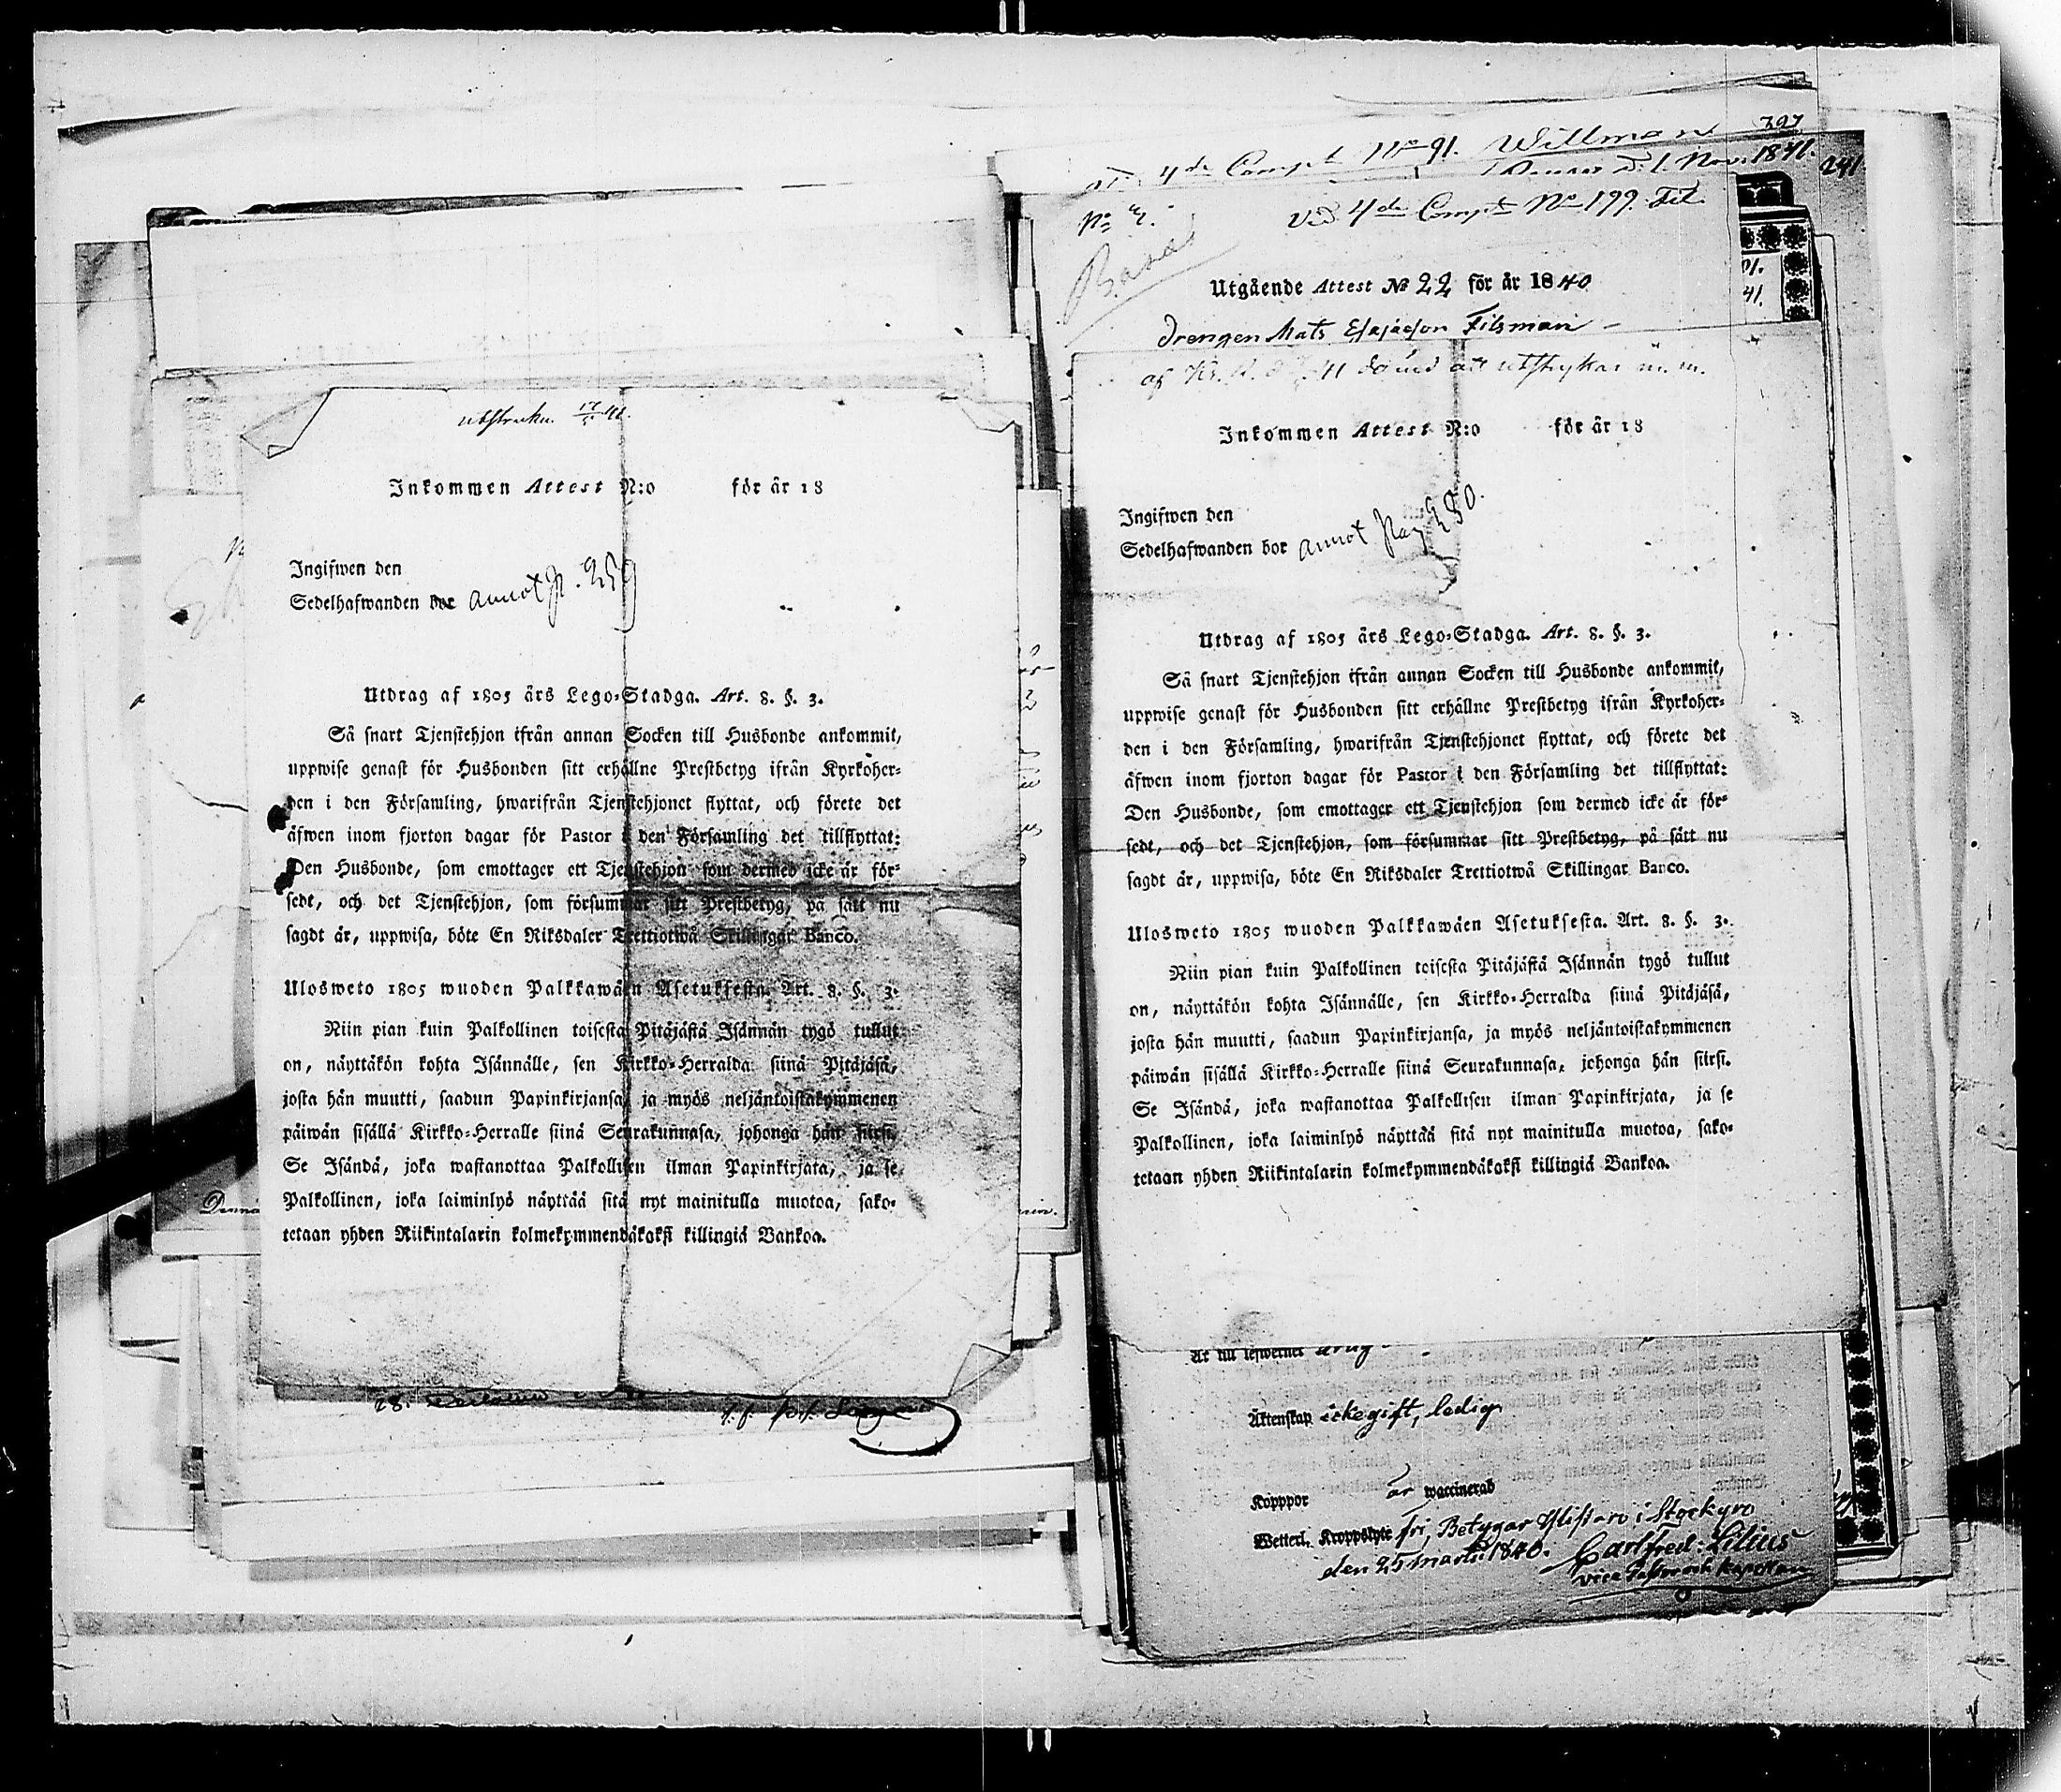 Inkommen Attest N:o för år 18
Ingifwen den
Sedelhafwanden bor annot p. 259
Utdrag af 1805 års Lego-Stadga. Art. 8. §. 3.
Så snart Tjenstehjon ifrån annan Socken till Husbonde ankommit,
uppwise genast för Husbonden sitt erhållne Prestbetyg ifrån Kyrkoher-
den i den Församling, hwarifrån Tjenstehjonet flyttat, och förete det
äfwen inom fjorton dagar för Pastor i den Församling det tillflyttat:
Den Husbonde, som emottager ett Tjenstehjon som dermed icke är för-
sedt, och det Tjenstehjon, som försummar sitt Prestbetyg, på sätt nu
sagdt är, uppwisa, böte En Riksdaler Trettiotwå Skillingar Banco.
Ulosweto 1805 wuoden Palkkawäen Asetuksesta. Art. 8. §. 3.
Niin pian kuin Palkollinen toisesta Pitäjästä Isännän tygö tullut
on, näyttäkön kohta Isännälle, sen Kirkko-Herralda siinä Pitäjäsä,
josta hän muutti, saadun Papinkirjansa, ja myös neljäntoistakymmenen
päiwän sisällä Kirkko-Herralle siinä Seurakunnasa, johonga hän siirsi.
Se Isändä, joka wastanottaa Palkollisen ilman Papinkirjata, ja se
Palkollinen, joka laiminlyö näyttää sitä nyt mainitulla muotoa, sako-
tetaan yhden Riikintalarin kolmekymmendäkaksi killingiä Bankoa.
4de Compt No 91. Willman
d. 1. Nov. 1841.
241
Vid 4de Compt No 199. Fil.
Utgående Attest No 22 för år 1840
Drengen Mats Esajasson Filsman
Inkommen Attest N:o för år 18
Ingifwen den
Sedelhafwanden bor annot pag 280.
Utdrag af 1805 års Lego-Stadga. Art. 8. §. 3.
Så snart Tjenstehjon ifrån annan Socken till Husbonde ankommit,
uppwise genast för Husbonden sitt erhållne Prestbetyg ifrån Kyrkoher-
den i den Församling, hwarifrån Tjenstehjonet flyttat, och förete det
äfwen inom fjorton dagar för Pastor i den Församling det tillflyttat:
Den Husbonde, som emottager ett Tjenstehjon som dermed icke är för-
sedt, och det Tjenstehjon, som försummar sitt Prestbetyg, på sätt nu
sagdt är, uppwisa, böte En Riksdaler Trettiotwå Skillingar Banco.
Ulosweto 1805 wuoden Palkkawäen Asetuksesta. Art. 8. §. 3.
Niin pian kuin Palkollinen toisesta Pitäjästä Isännän tygö tullut
on, näyttäkön kohta Isännälle, sen Kirkko-Herralda siinä Pitäjäsä,
josta hän muutti, saadun Papinkirjansa, ja myös neljäntoistakymmenen
päiwän sisällä Kirkko-Herralle siinä Seurakunnasa, johonga hän siirsi.
Se Isändä, joka wastanottaa Palkollisen ilman Papinkirjata, ja se
Palkollinen, joka laiminlyö näyttää sitä nyt mainitulla muotoa, sako-
tetaan yhden Riikintalarin kolmekymmendäkaksi killingiä Bankoa.
Är till lefwernet
Äktenskap icke gift, ledig
Kopppor är waccinerad
Wetterl. Kroppslyte fri, Betygar Ylistaro i Storkyro
den 25 Martii 1840. Carl Fred: Lilius
vice Pastor och Kapellan